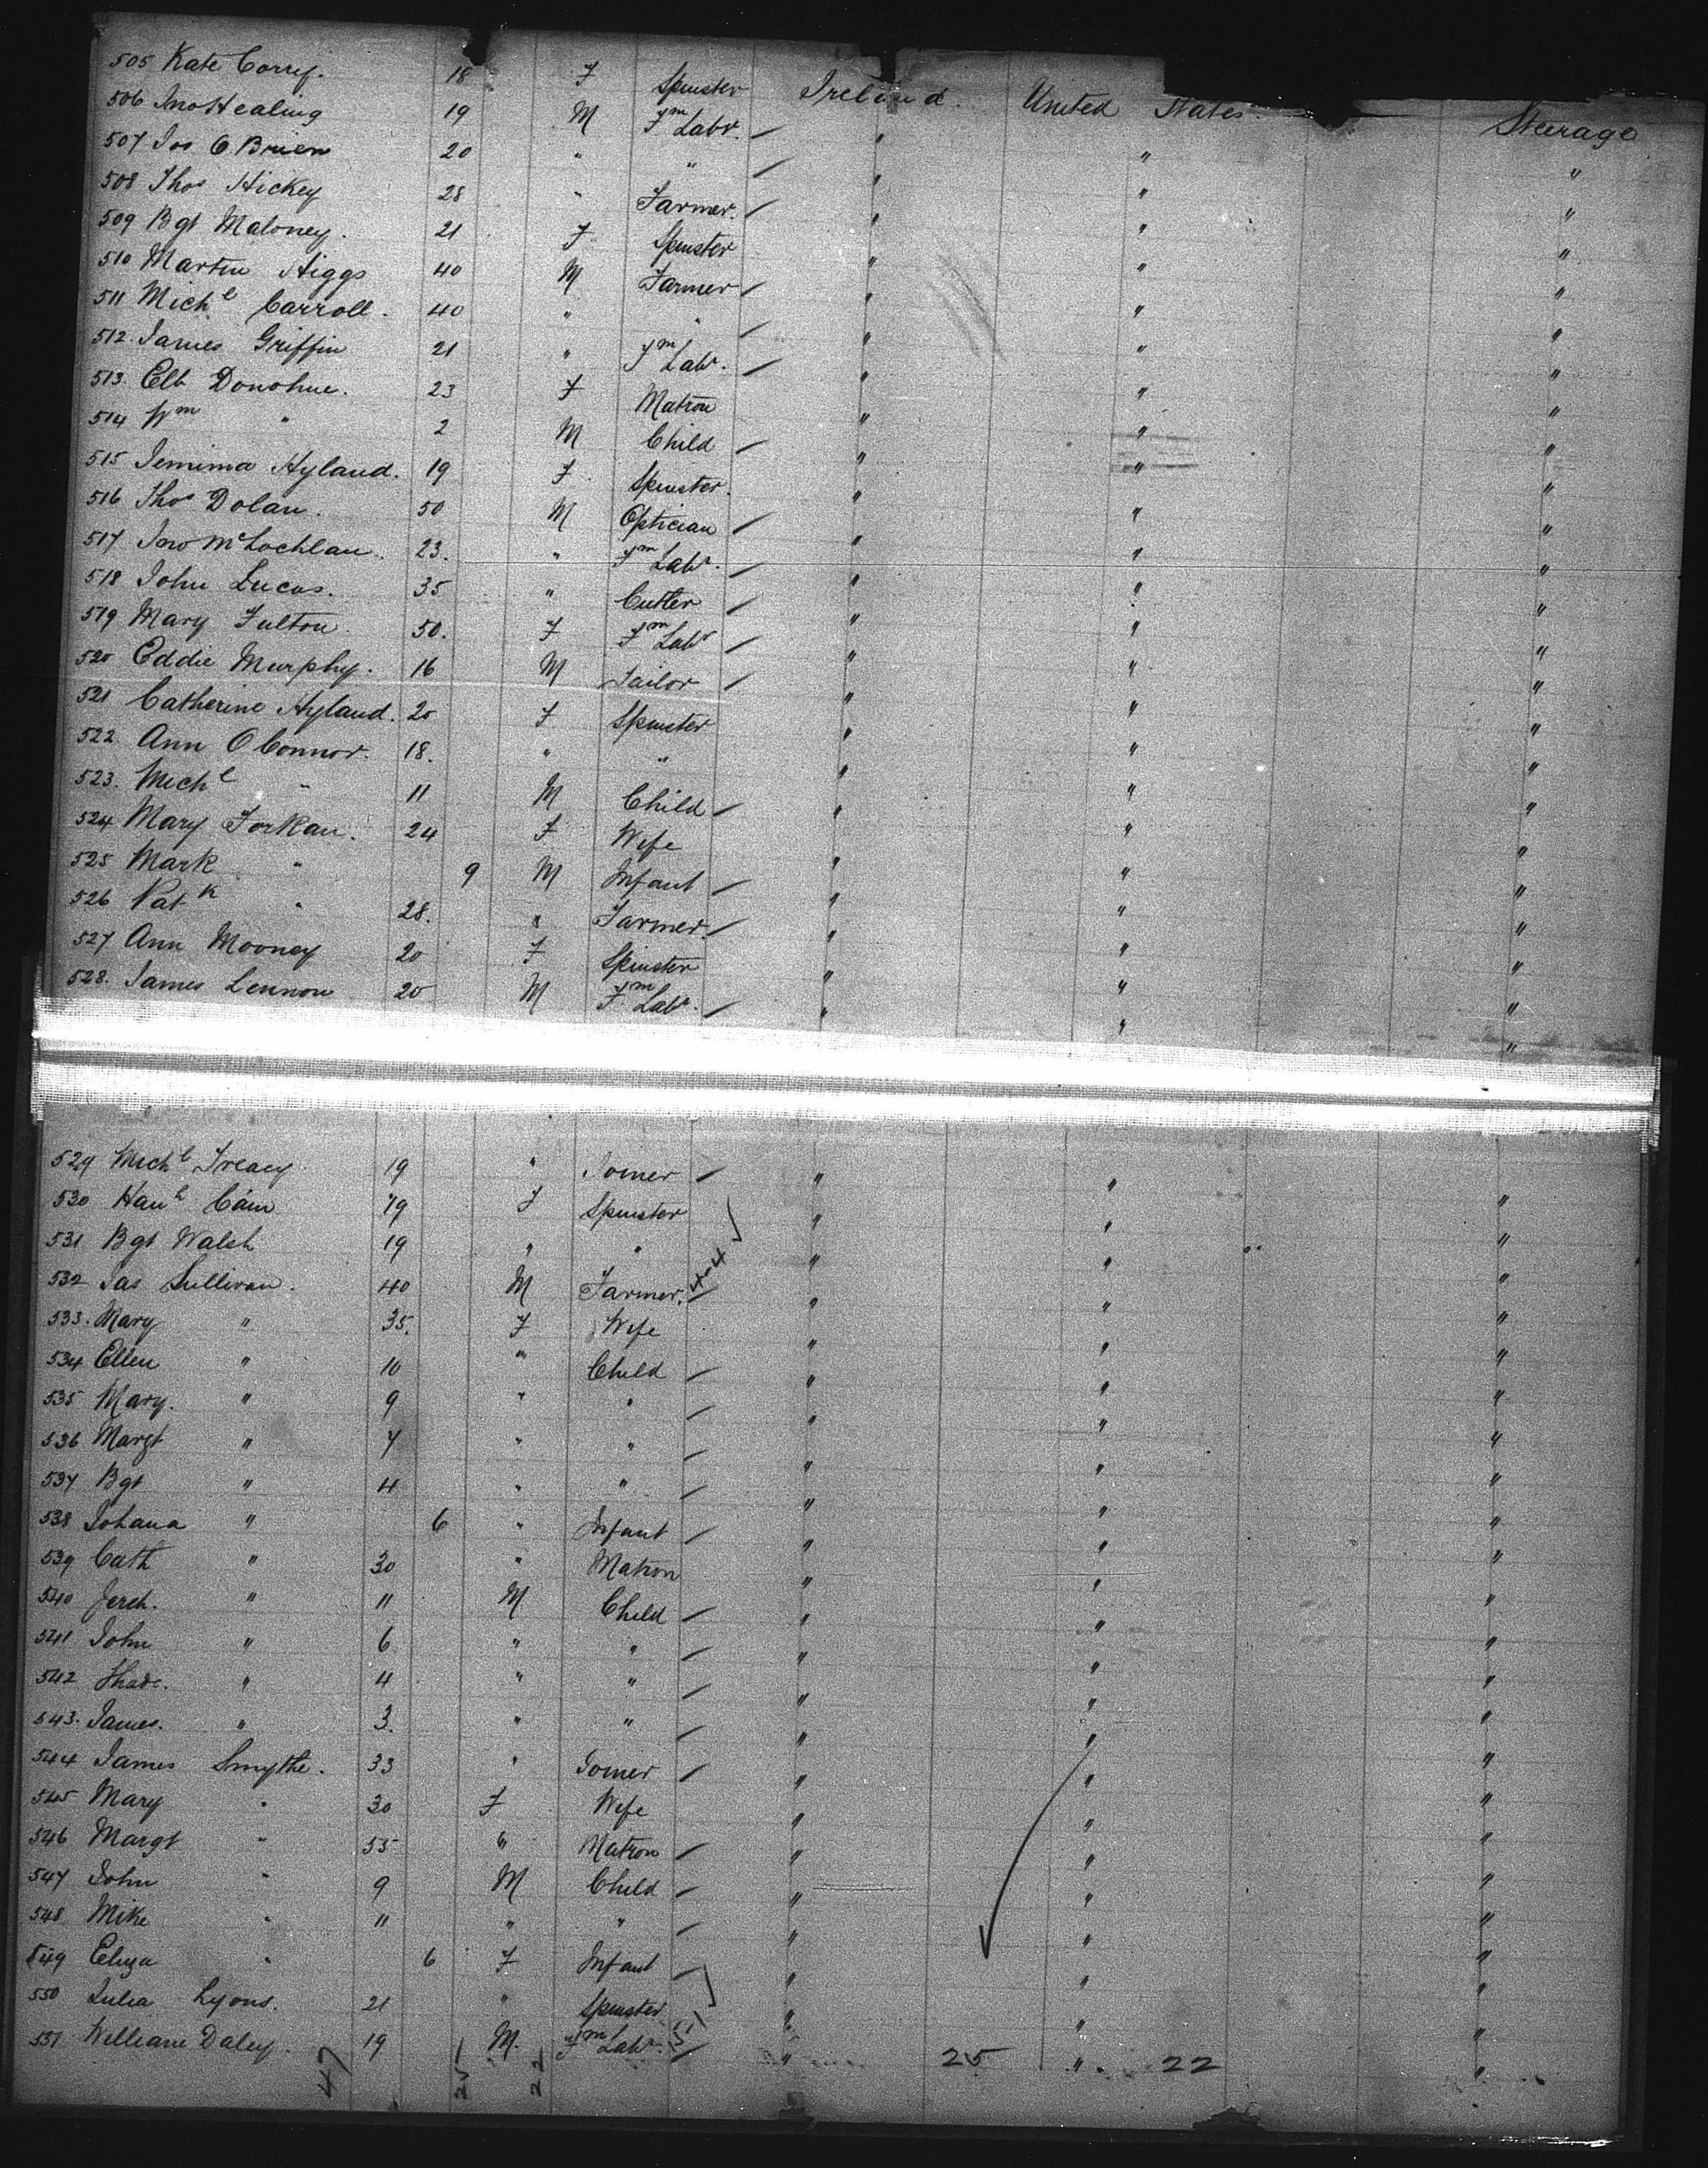 505 Kate Correy. 18 F Spinster Ireland. United States. Steerage
506 Jno Healing 19 M Fm Labr. " " "
507 Jos O.Brien 20 " " " " "
508 Thos Hickey 28 " Farmer. " " "
509 Bgt Maloney. 21 F Spinster " " "
510 Martin Higgs 40 M Farmer " " "
511 Michl Carroll. 40 " " " " "
512. James Griffin 21 " Fm Labr. " " "
513. Elb Donohue. 23 F Matron " " "
514 Wm " 2 M Child " " "
515 Jemima Hyland. 19 F Spinster. " " "
516 Thos Dolan. 50 M Optician " " "
517 Jno McLochlan. 23. " Fm Labr. " " "
518 John Lucas. 35 " Cutler " " "
519 Mary Fulton. 50. F Fm Labr " " "
520 Eddie Murphy. 16 M Tailor " " "
521 Catherine Hyland. 20 F Spinster " " "
522. Ann O'Connor. 18. " " " " "
523. Michl " 11 M Child " " "
524 Mary Forkan. 24 F Wife " " "
525 Mark " 9 M Infant " " "
526 Patk " 28. " Farmer. " " "
527 Ann Mooney 20 F Spinster " " "
528. James Lennon 20 M Fm Labr. " " "
529 Michl Treacy 19 " Joiner " " "
530 Hanh Cain 19 F Spinster " " "
531 Bgt Walsh 19 " " " " "
532 Jas Sullivan. 40 M Farmer. " " "
533. Mary " 35. F Wife " " "
534 Ellen " 10 " Child " " "
535 Mary. " 9 " " " " "
536 Margt " 7 " " " " "
537 Bgt " 4 " " " " "
538 Johana " 6 " Infant " " "
539 Cath " 30 " Matron " " "
540 Jereh. " 11 M Child " " "
541 John " 6 " " " " "
542 Thade. " 4 " " " " "
543. James. " 3. " " " " "
544 James Smythe. 33 " Joiner " " "
545 Mary " 30 F Wife " " "
546 Margt " 55 " Matron " " "
547 John " 9 M Child " " "
548 Mike " 11 " " " " "
549 Eliza " 6 F Infant " " "
550 Julia Lyons. 21 " Spinster " " "
551 William Daley. 19 M. Fm Labr. " " "
47 25 22 25 22